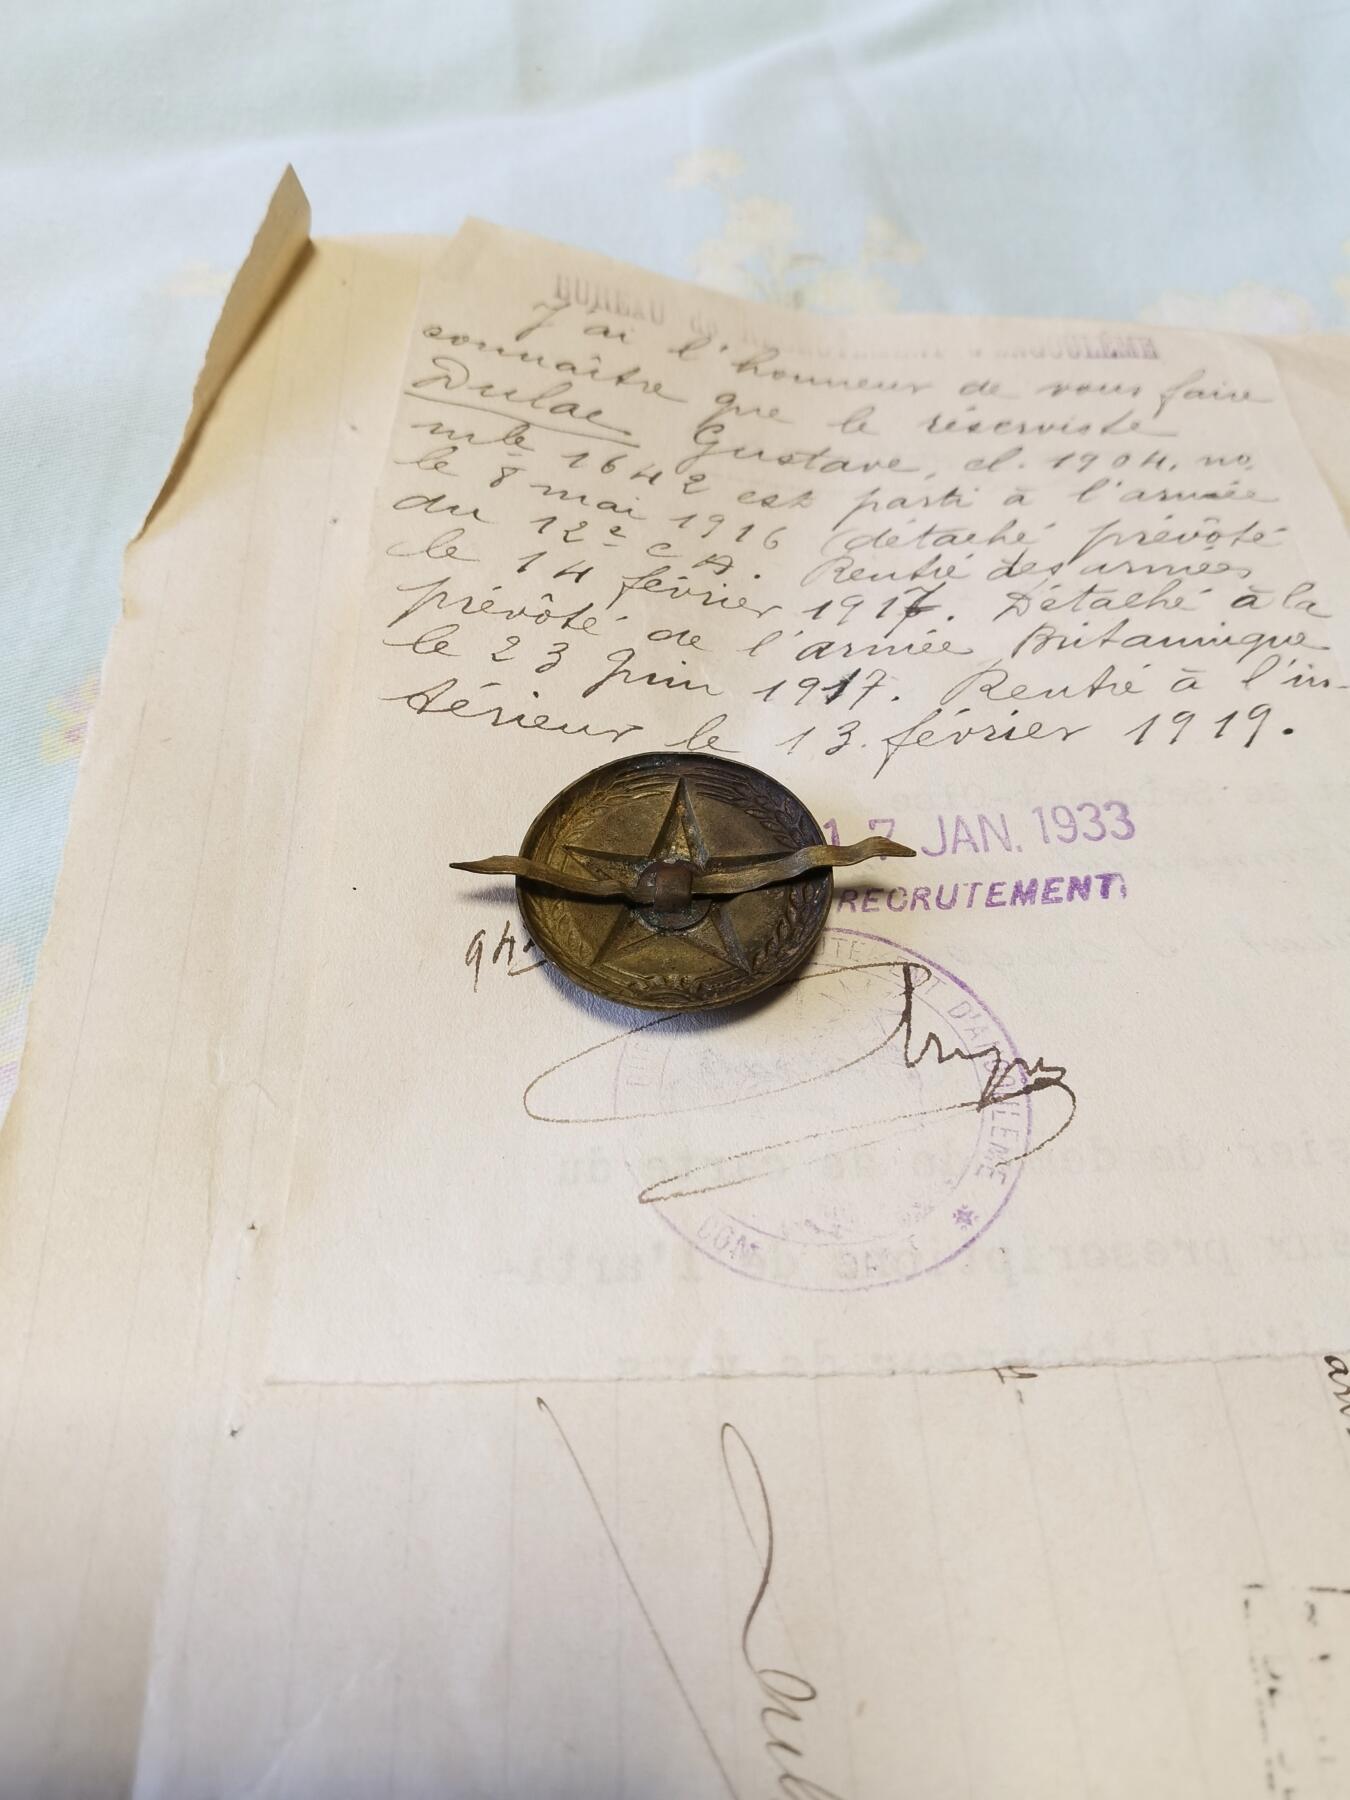 BUREAU de RECRUTEMENT d'ANGOULÊME
J'ai l'honneur de vous faire
connaître que le réserviste
Dulac Gustave, cl. 1904, no
mle 1642 est parti à l'armée
le 8 mai 1916 (détaché prévôté
du 12e C A. Rentré des armées
le 14 février 1917. Détaché à la
prévôté de l'armée Britannique
le 23 Juin 1917. Rentré à l'in-
térieur le 13 février 1919.
17 JAN. 1933
RECRUTEMENT
94
D'ANGOULEME